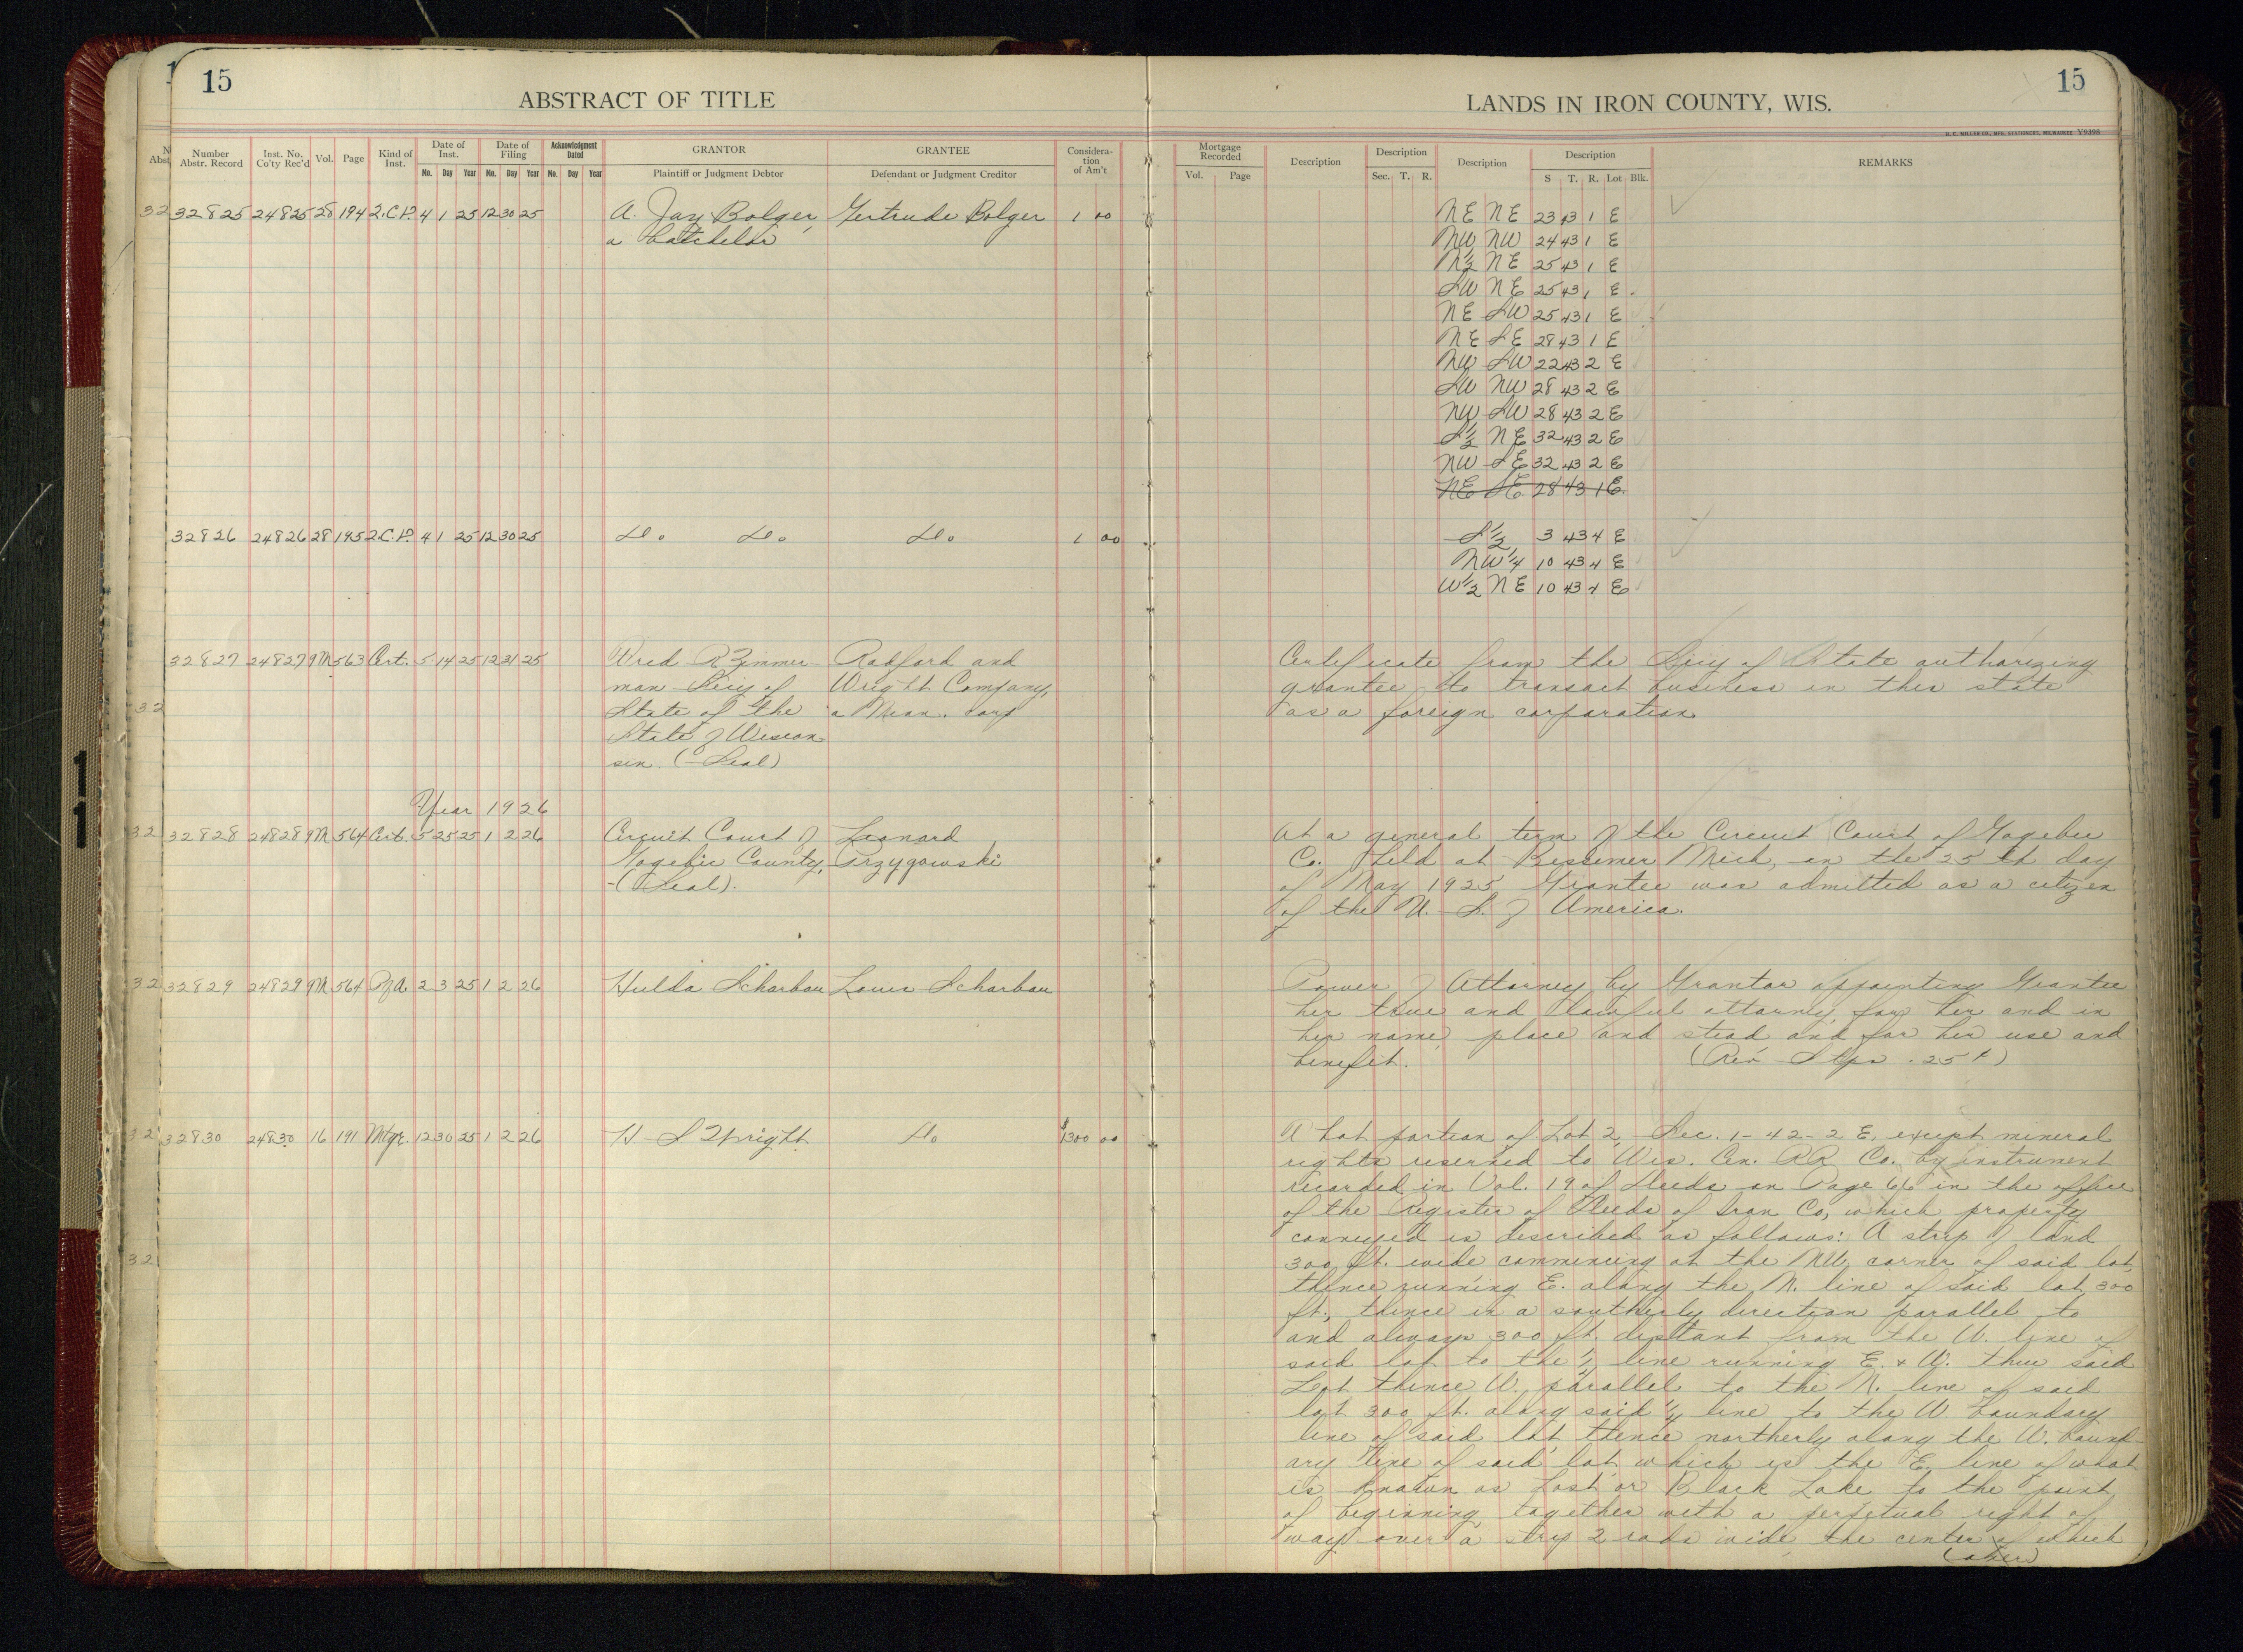 15
ABSTRACT OF TITLE
Number Abstr. Record
Inst. No. Co'ty Rec'd
Vol.
Page
Kind of Inst.
Date of Inst.
Mo. Day Year
Date of Filing
Mo. Day Year
Acknowledgment Dated
Mo. Day Year
GRANTOR
Plaintiff or Judgment Debtor
GRANTEE
Defendant or Judgment Creditor
Consideration of Am't
32825 24825 28 194 2.C.D. 4 1 25 12 30 25 A. Jay Bolger, Gertrude Bolger 1 00
a batchelor
32826 24826 28 195 2.C.D. 4 1 25 12 30 25 Do. Do. Do. 1 00
32827 24827 9M 563 Cert. 5 14 25 12 31 25 Fred R Zimmer- Radford and
man Secy of Wright Company,
State of the a Minn. corp
State of Wiscon
sin. (Seal)
Year 1926
32828 24828 9M 564 Cert. 5 25 25 1 2 26 Circuit Court of Leonard
Gogebic County, Przygowski
(Seal).
32829 24829 9M 564 P of A. 2 3 25 1 2 26 Hulda Scharbau Louis Scharbau
32830 24830 16 191 Mtge. 12 30 25 1 2 26 H S Wright Do $1300 00
LANDS IN IRON COUNTY, WIS.
15
H. C. MILLER CO., MFG. STATIONERS, MILWAUKEE Y9398
Mortgage Recorded
Vol. Page
Description
Description
Sec. T. R.
Description
Description
S T. R. Lot Blk.
REMARKS
NE NE 23 43 1 E
NW NW 24 43 1 E
N½ NE 25 43 1 E
SW NE 25 43 1 E
NE SW 25 43 1 E
NE SE 28 43 1 E
NW SW 22 43 2 E
SW NW 28 43 2 E
NW SW 28 43 2 E
S½ NE 32 43 2 E
NW SE 32 43 2 E
NE SE 28 43 1 E
S½ 3 43 4 E
NW¼ 10 43 4 E
W½ NE 10 43 4 E
Certificate from the Secy of State authorizing
grantee to transact business in this state
as a foreign corporation
At a general term of the Circuit Court of Gogebic
Co. Held at Bessemer Mich, on the 25th day
of May 1925 Grantee was admitted as a citizen
of the U. S. of America.
Power of Attorney by Grantor appointing Grantee
her true and lawful attorney, for her and in
her name, place and stead and for her use and
benefit. (Rev Stps .25¢)
That portion of Lot 2, Sec. 1-42-2 E, except mineral
rights reserved to Wis. Cen. RR Co. by instrument
recorded in Vol. 19 of Deeds on Page 66 in the office
of the Register of Deeds of Iron Co, which property
conveyed is described as follows: A strip of land
300 ft. wide commencing at the NW corner of said lot,
thence running E. along the N. line of said lot 300
ft., thence in a southerly direction parallel to
and always 300 ft. distant from the W. line of
said lot to the ¼ line running E. & W. thru said
Lot thence W. parallel to the N. line of said
lot 300 ft. along said ¼ line to the W boundary
line of said lot thence northerly along the W. bound-
ary line of said lot which is the E. line of what
is known as Lost or Black Lake to the point
of beginning together with a perpetual right of
way over a strip 2 rods wide, the center of which
(over)